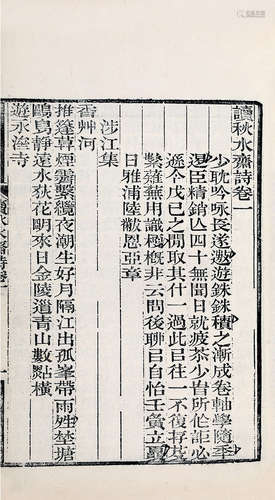 讀秋水齋詩卷一
少耽吟咏長遂遨遊銖銖積之漸成卷軸學隨年
臣精銷亾四十無聞日就疲苶少旹所作詎必
遜今戊己之閒取其什一過此已往一不復存其
蕪用識概非云問後聊已自怡壬立夏
日雅浦陸黻恩亞章
涉江集
香艸河
推篷草煙霽繫纜夜潮生好月隔江出孤峯帶雨塘
鷗鳥靜遠水荻花明來日金陵道青山數點橫
遊水寺
讀秋水齋詩卷一